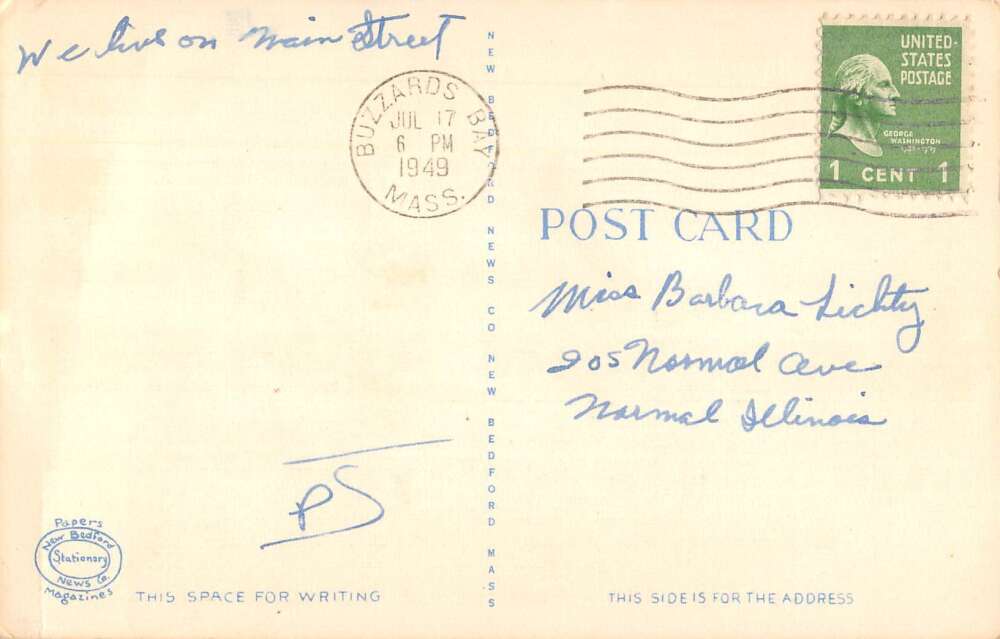 We live on Main Street
BUZZARDS BAY
JUL 17
6 PM
1949
MASS.
UNITED
STATES
POSTAGE
GEORGE
WASHINGTON
1 CENT 1
NEW BEDFORD NEWS CO NEW BEDFORD MASS
POST CARD
Miss Barbara Lichty
205 Normal Ave
Normal Illinois
PS
Papers
New Bedford
Stationary
News Co.
Magazines
THIS SPACE FOR WRITING
THIS SIDE IS FOR THE ADDRESS